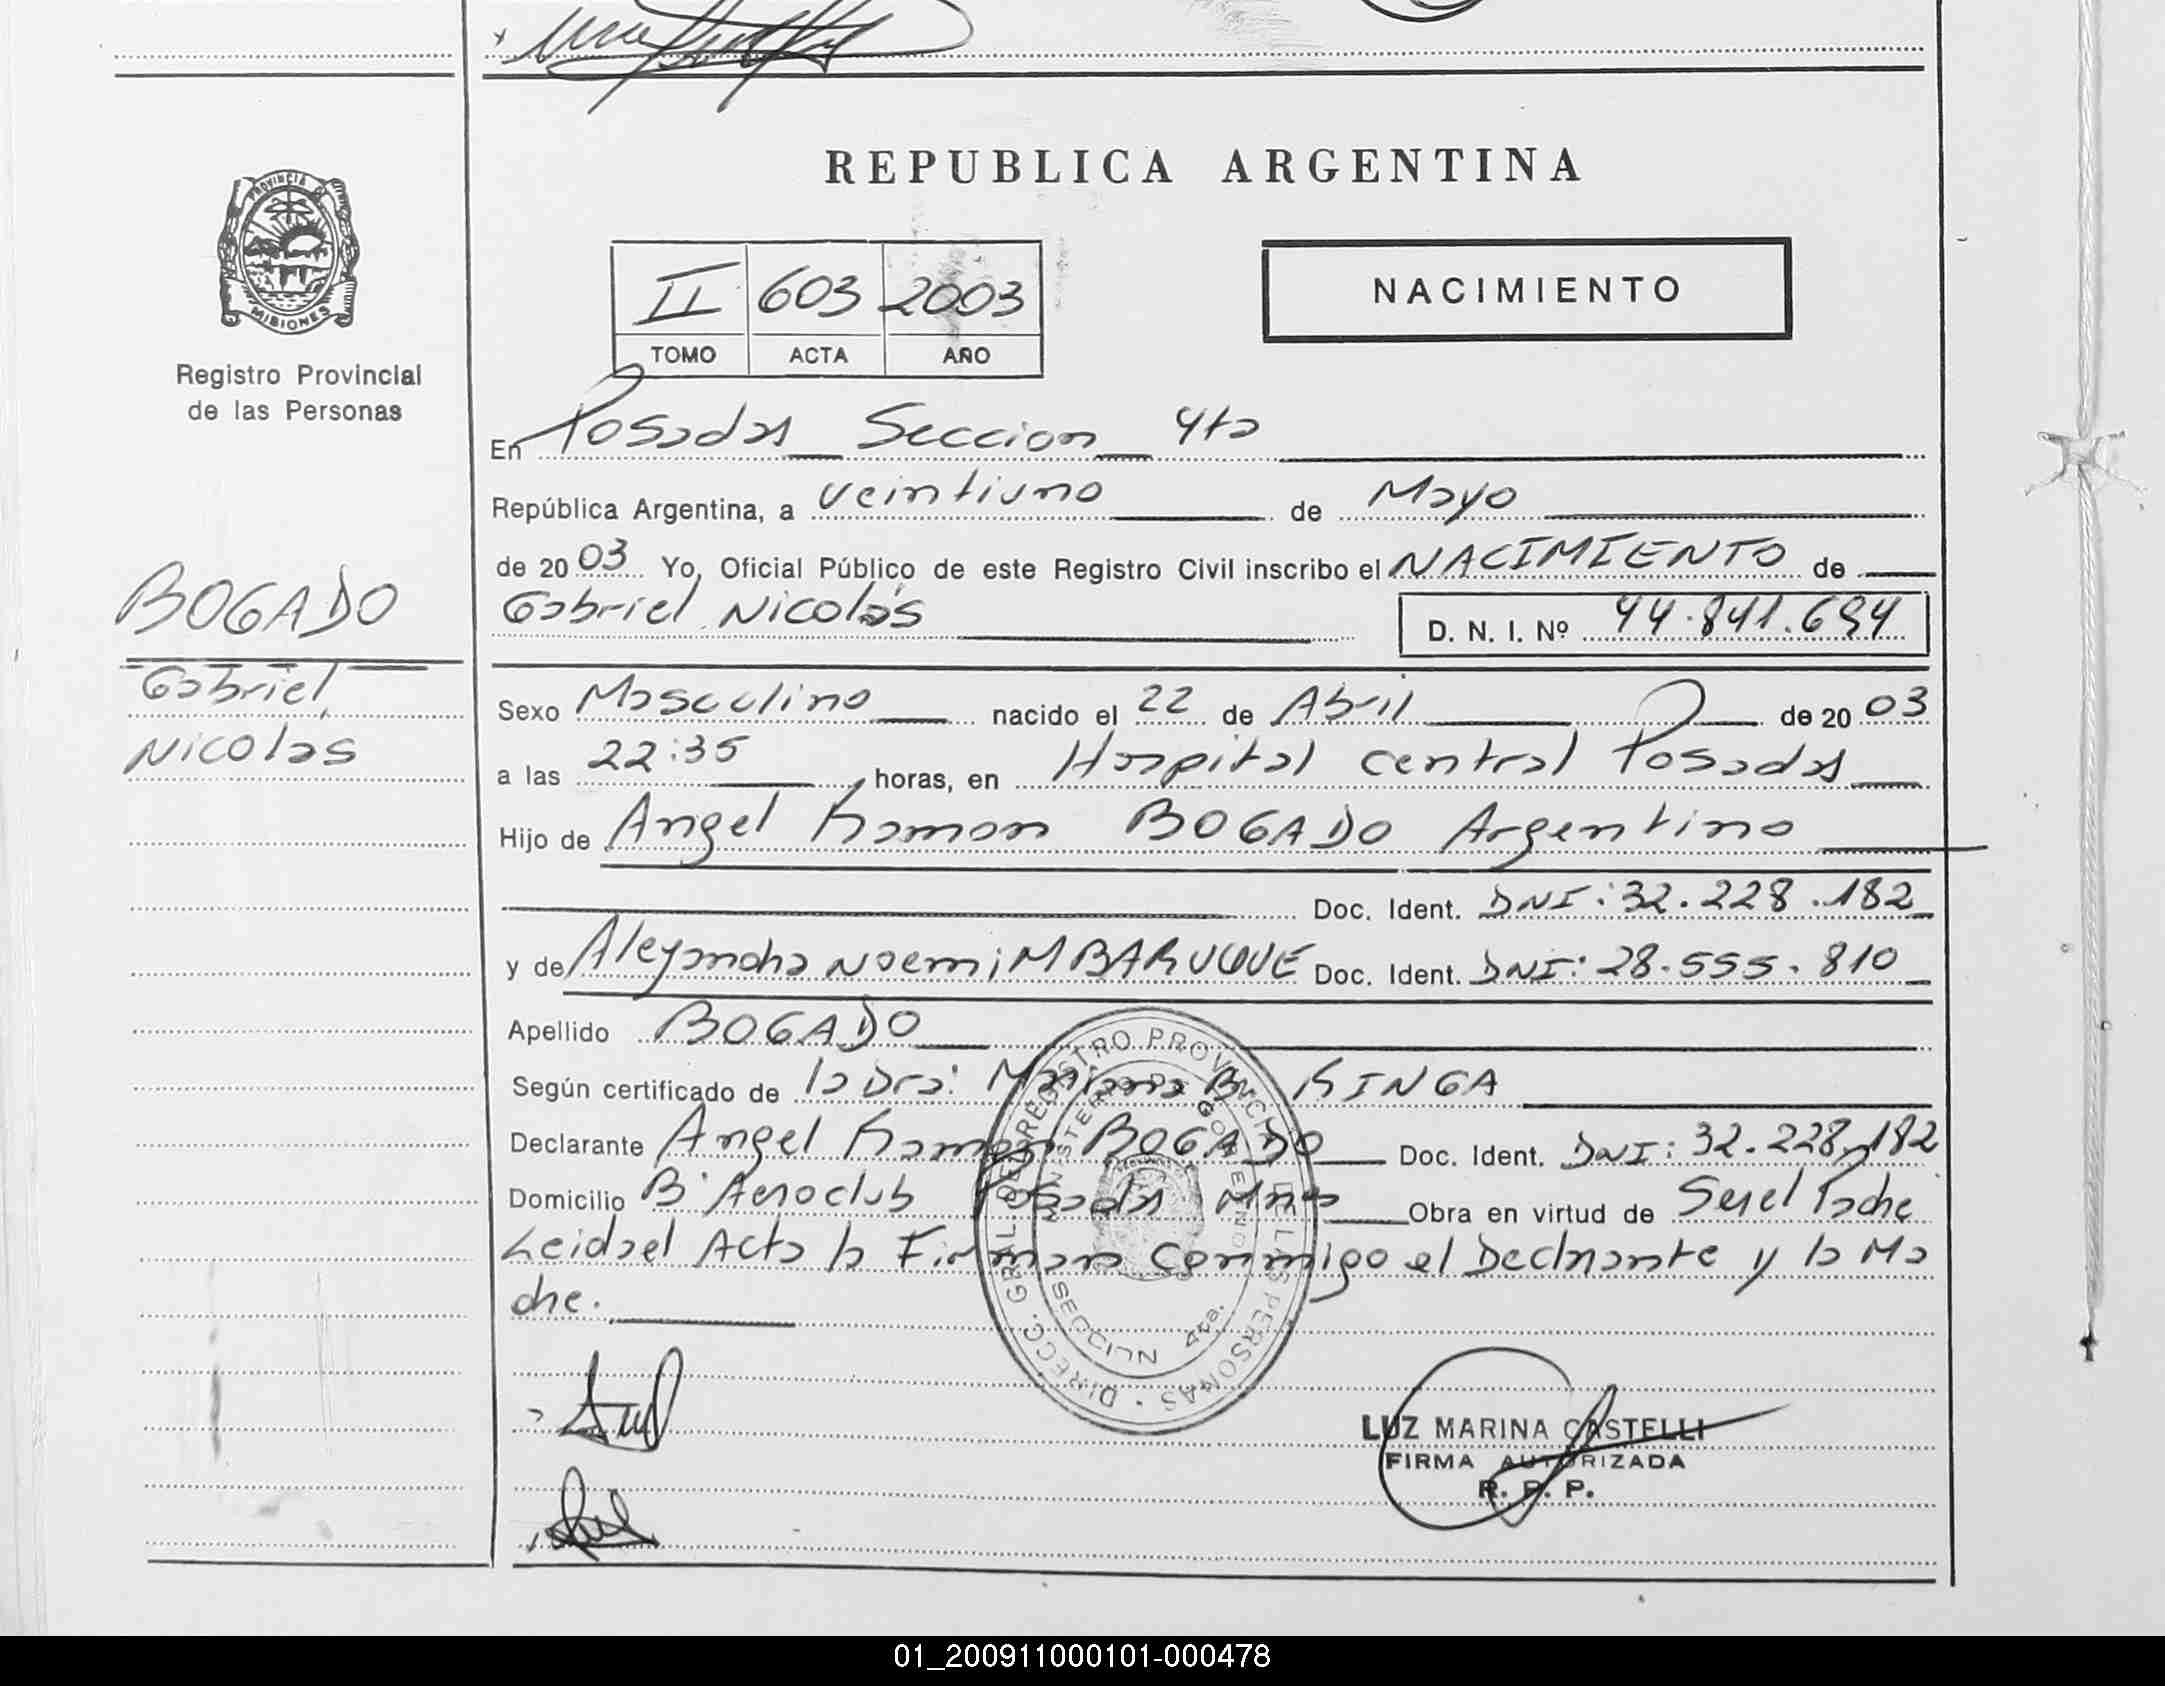 REPUBLICA ARGENTINA
PROVINCIA DE
MISIONES
Registro Provincial
de las Personas
II 603 2003
TOMO ACTA AÑO
NACIMIENTO
En Posadas Seccion 4ta
República Argentina, a veintiuno de Mayo
de 2003 Yo, Oficial Público de este Registro Civil inscribo el NACIMIENTO de
Gabriel Nicolás D. N. I. Nº 44.841.694
BOGADO
Gabriel
Nicolas
Sexo Masculino nacido el 22 de Abril de 2003
a las 22:35 horas, en Hospital central Posadas
Hijo de Angel Ramon BOGADO Argentino
Doc. Ident. DNI: 32.228.182
y de Alejandra Noemi MBARUQUE Doc. Ident. DNI: 28.555.810
Apellido BOGADO
Según certificado de la Dra: Mariana B. KINGA
Declarante Angel Ramon BOGADO Doc. Ident. DNI: 32.228.182
Domicilio Bº Aeroclub Posadas Mnes Obra en virtud de Ser el Padre
Leida el Acta la Firman Conmigo el Declarante y la Ma
dre.
DIRECC. GRAL DEL REGISTRO PROVINCIAL DE LAS PERSONAS
MINISTERIO DE GOBIERNO
SECCION 4ta.
LUZ MARINA CASTELLI
FIRMA AUTORIZADA
R. P. P.
01_200911000101-000478